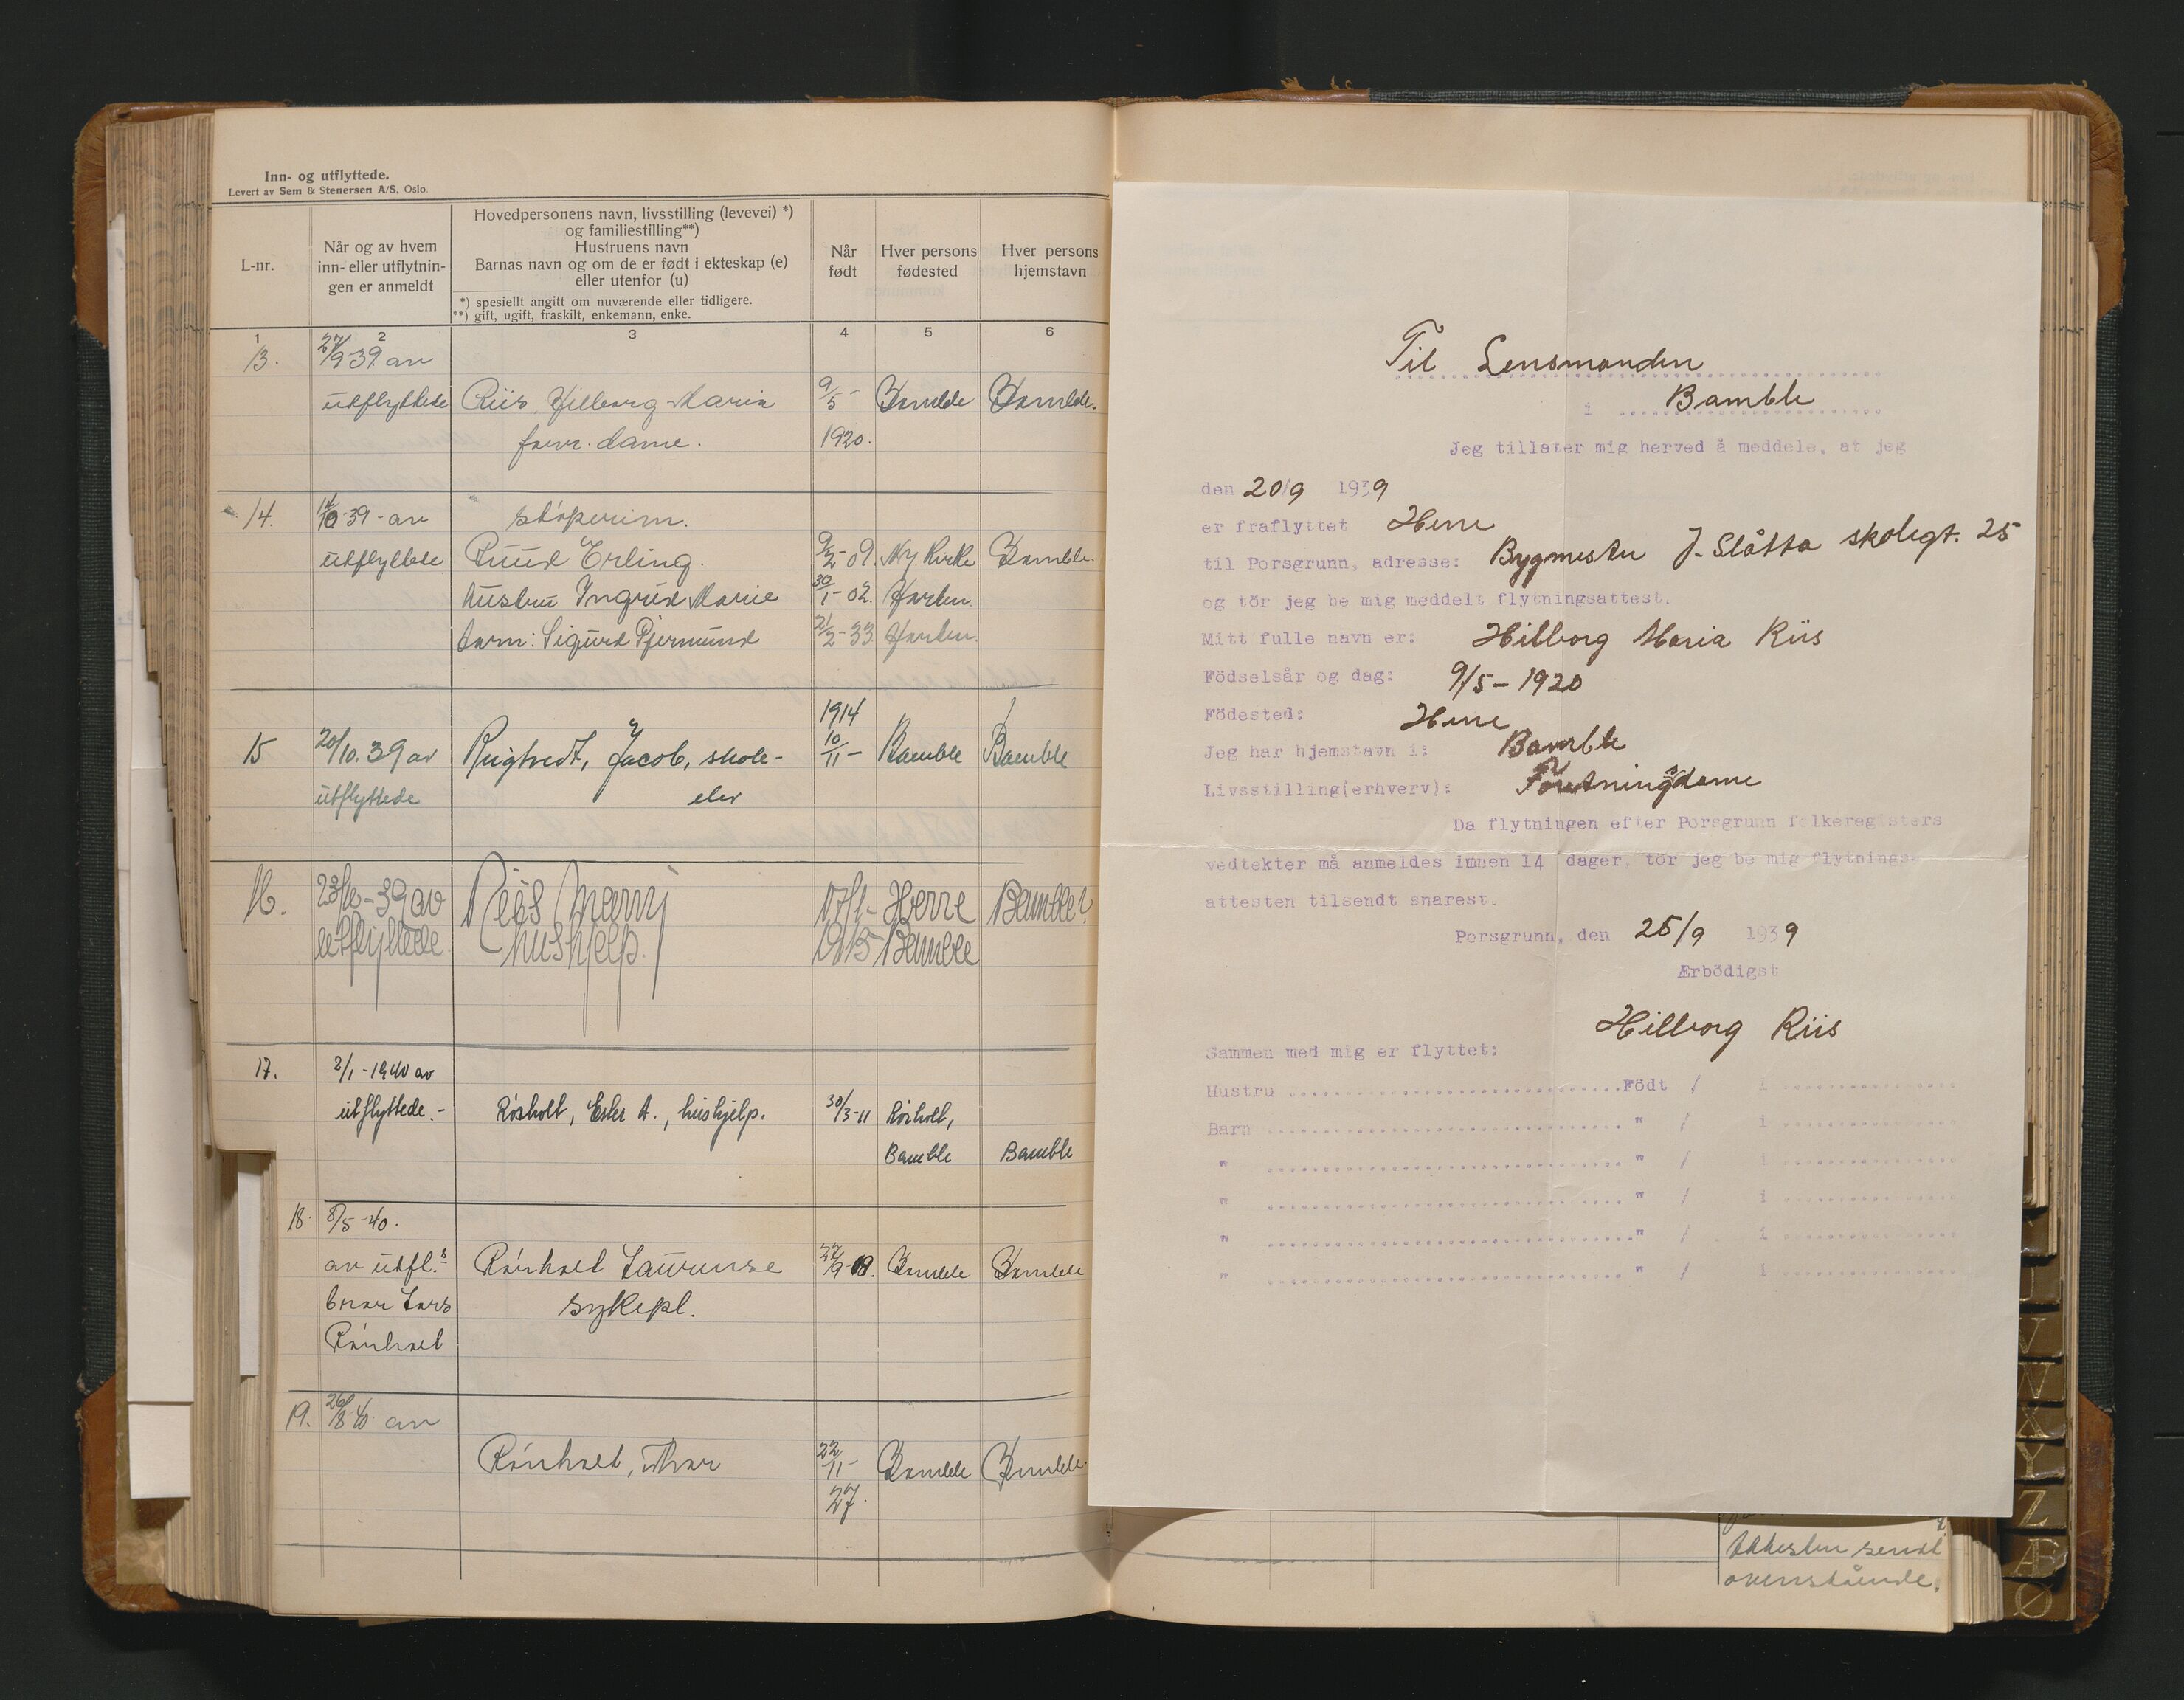 Inn- og utflyttede.
Levert av Sem & Stenersen A/S, Oslo.
L-nr.
Når og av hvem
inn- eller utflytnin-
gen er anmeldt
Hovedpersonens navn, livsstilling (levevei) *)
og familiestilling**)
Hustruens navn
Barnas navn og om de er født i ekteskap (e)
eller utenfor (u)
*) spesiellt angitt om nuværende eller tidligere.
**) gift, ugift, fraskilt, enkemann, enke.
Når
født
Hver persons
fødested
Hver persons
hjemstavn
1 2 3 4 5 6
13. 27/9-39 av
utflyttede Riis Hilborg Maria 9/5- Bamble Bamble.
forr. dame. 1920.
14. 10-39-av støperim.
utflyttede Ruud Erling. 9/2-09. Ny Kirke Bamble.
Hustru Ingrid Marie 30/1-02. Horten.
barn: Sigurd 21/2-33 Horten.
1914
15 20/10.39 av Rugtvedt, Jacob, skole- 10/11- Bamble Bamble
utflyttede elev
16. 39 av Riis Marry 17/1- Herre Bamble?
utflyttede. hushjelp. 1915 Bamble
17. 2/1-1940 av
utflyttede.- Rösholt, Ester A., hushjelp. 30/3-11 Rösholt,
Bamble Bamble
18. 8/5-40.
av utfl.s Rönholt Laurense 27/9- Bamble Bamble
bror Lars sykepl.
Rönholt
19. 26/8-40 av
Rönholt, Thor 22/11- Bamble Bamble.
27.
Til Lensmanden
i Bamble
Jeg tillater mig herved å meddele, at jeg
den 20/9 1939
er fraflyttet Herre
til Porsgrunn, adresse: Bygmester J. Slåtta skolegt. 25
og tör jeg be mig meddelt flytningsattest.
Mitt fulle navn er: Hilborg Maria Riis
Födselsår og dag: 9/5-1920
Födested: Herre
Jeg har hjemstavn i: Bamble
Livsstilling(erhverv): Foretningsdame
Da flytningen efter Porsgrunn folkeregisters
vedtekter må anmeldes innen 14 dager, tör jeg be mig flytnings-
attesten tilsendt snarest.
Porsgrunn, den 25/9 1939
Ærbödigst
Hilborg Riis
Sammen med mig er flyttet:
Hustru Födt / i
Barn " / i
" " / i
" " / i
" " / i
" " / i
Attesten sendt
ovenstående.
V
W
X
Y
Z
Æ
Ø